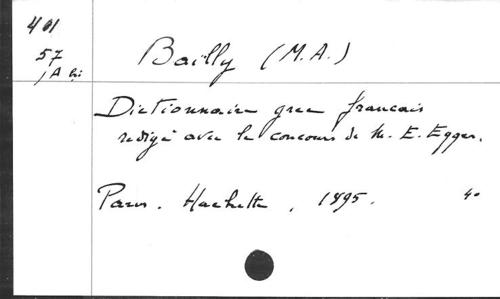 401
57
/A bi
Bailly (M.A.)
Dictionnaire grec francais
redigé avec le concours de M. E. Egger.
Paris. Hachette, 1895. 4°